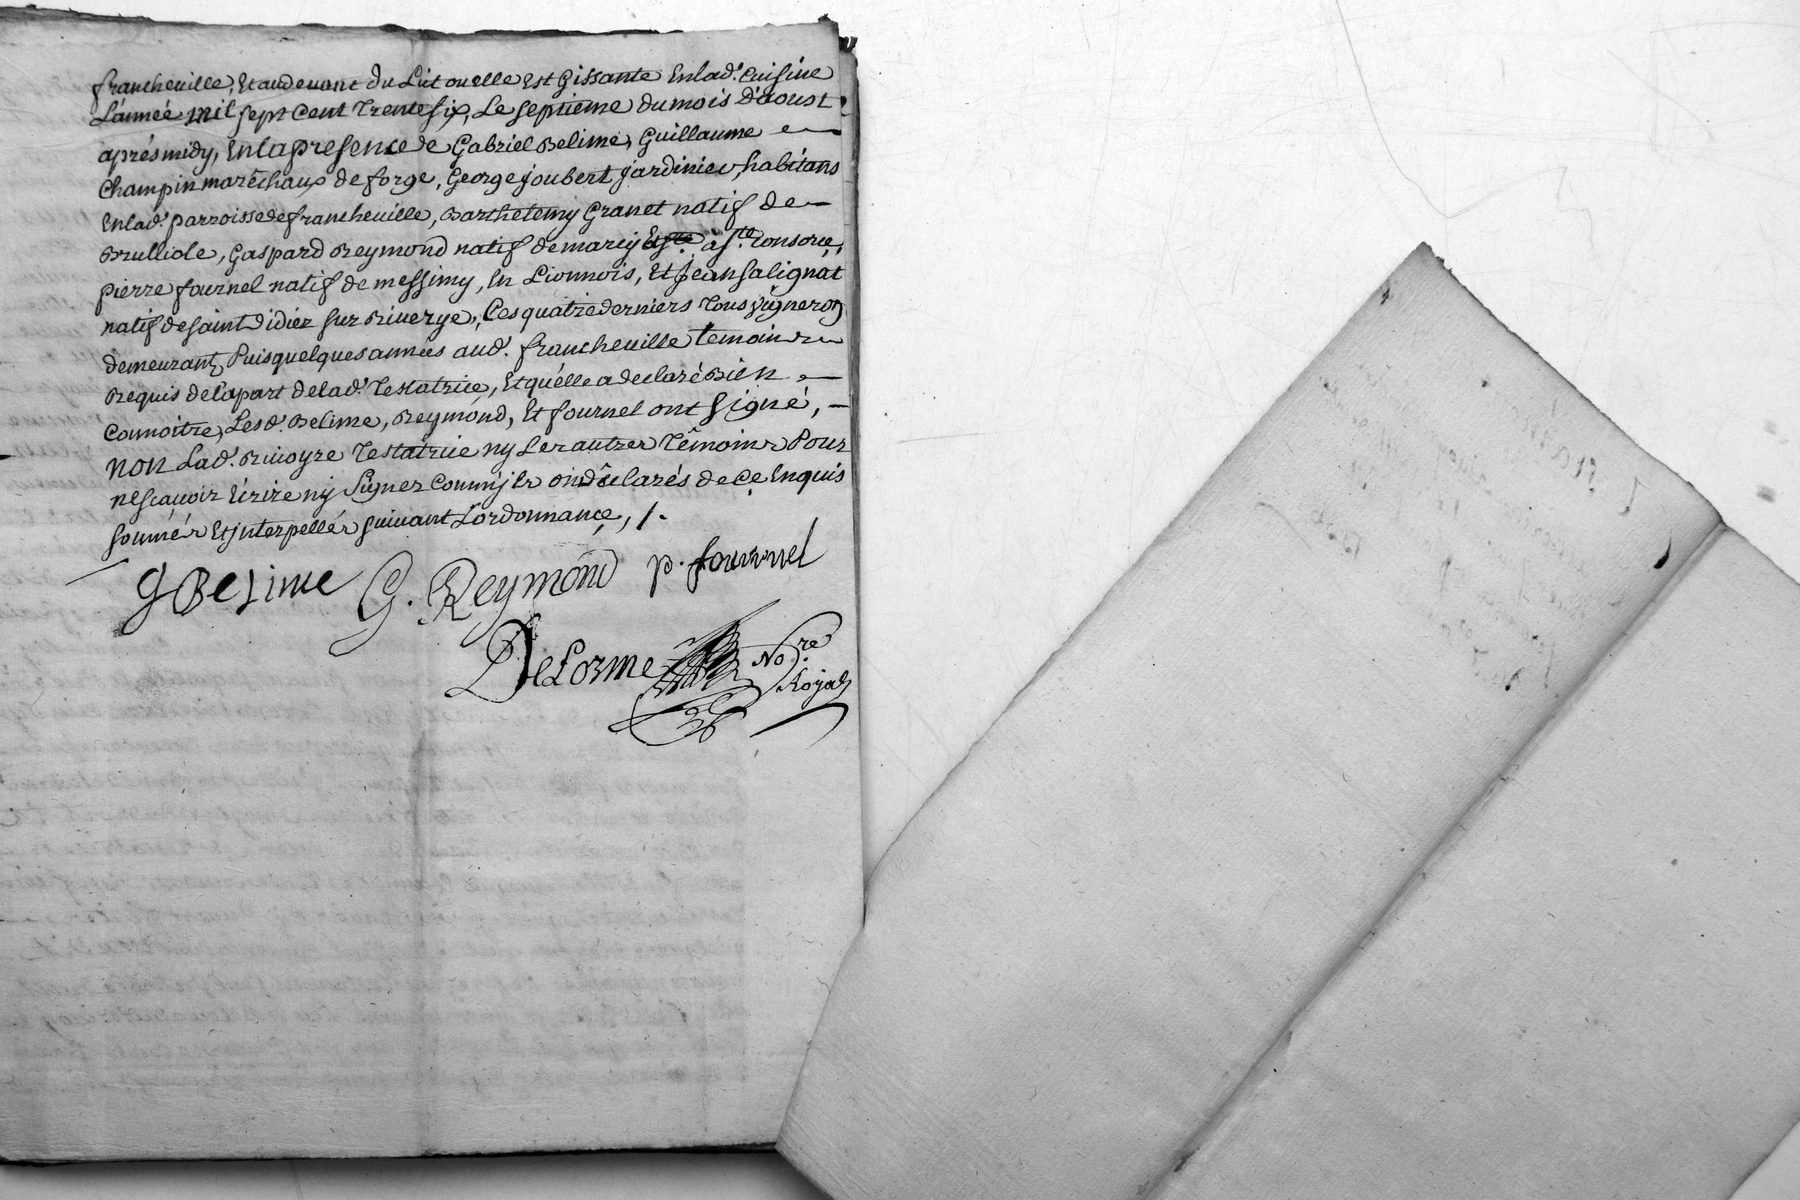 francheuille, Et audeuant du Lict ou elle Est Gissante En lad.e Cuisine
L'année mil sept Cent Trente six, Le septieme du mois D'aoust
aprés midy, En la presence de Gabriel Belime, Guillaume
Champin maréchaux de forge, George joubert jardinier, habitans
En lad.e parroisse de francheuille, Barthelemy Granet natif de
Brulliole, Gaspard Reymond natif de marcy à s.te Consorce,
pierre fournel natif de messimy, En Lionnois, Et Jean Salignat
natif de saint Didier sur Riuerye, Ces quatre derniers Tous vignerons
demeurants Puis quelques années aud. francheuille Temoins
Requis de la part de lad.e Testatrice, Et qu'elle a declaré Bien
Connoitre, Lesd. Belime, Reymond, Et fournel ont Signé,
non Lad.e Riuoyre Testatrice ny Les autres Témoins Pour
ne scauoir Ecrire ny Signer Comm'jls ont déclarés de Ce Enquis
sommés Et jnterpellés suiuant L'ordonnance, /.
G Belime G. Reymond p. fournel
DeLorme No.re
Royal